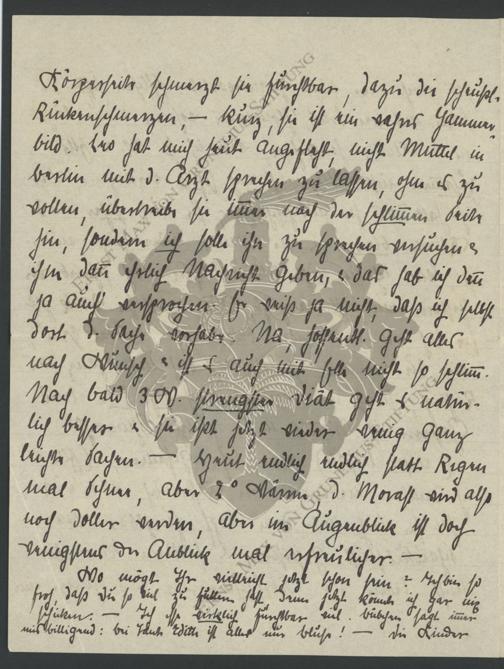 Körperseite schmerzt sie furchtbar, dazu die scheußl.
Rückenschmerzen, — kurz, sie ist ein wahres Jammer-
bild. Leo hat mich heut angefleht, nicht Muttel in
Berlin mit d. Arzt sprechen zu lassen, ohne es zu
wollen, übertreibe sie immer nach der schlimmen Seite
hin, sondern ich solle ihn zu sprechen versuchen u
ihm dann ehrlich Nachricht geben, u das hab ich denn
ja auch versprochen. Er weiß ja nicht, daß ich selbst
dort d. Sache vorhabe. Na, hoffentl. geht alles
nach Wunsch u ist es auch mit Galle nicht so schlimm.
Nach bald 3 W. strengster Diät geht es natür-
lich besser u sie ißt jetzt wieder wenig ganz
leichte Sachen. — Heut endlich endlich statt Regen
mal Schnee, aber 2° Wärme, d. Morast wird also
noch doller werden, aber im Augenblick ist doch
wenigstens der Anblick mal erfreulicher. —
Wo mögt Ihr vielleicht jetzt schon sein? Ich bin so
froh, daß Du so viel zu hast. Denn jetzt könnte ich gar nix
schicken. — Ich esse wirklich furchtbar viel. Bubchen sagt immer
mißbilligend: bei Tante Editt ist alles nur bluse! — Die Kinder